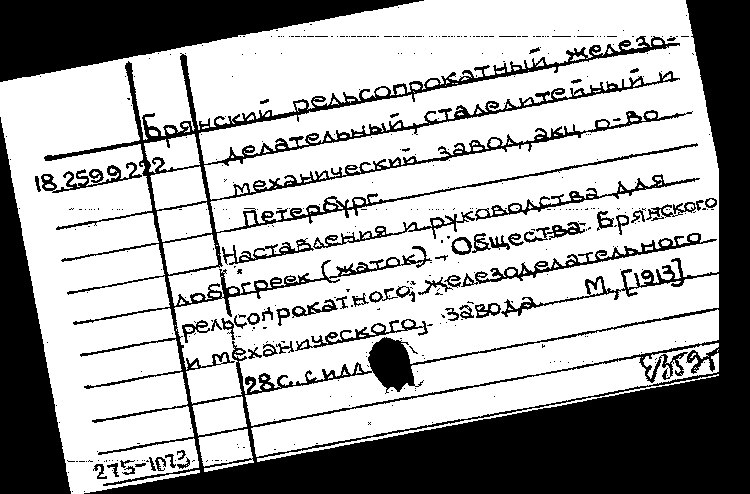 Брянский рельсопрокатный, железо-
18.259.9.222. делательный, сталелитейный и
механический завод, акц. о-во
Петербург.
Наставления и руководства для
лобогреек (жаток) Общества Брянского
рельсопрокатного, железоделательного
и механического завода. М., [1913].
28 с. с илл
275-1073